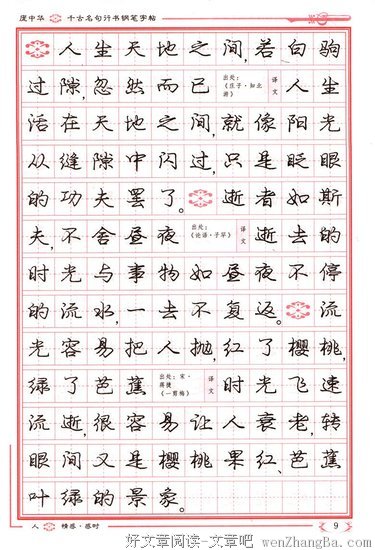 庞中华 千古名句行书钢笔字帖
人生天地之间,若白驹
过隙,忽然而已 出处:《庄子·知北游》 译文 人生
活在天地之间,就像阳光
从缝隙中闪过,只是眨眼
的功夫罢了。 逝者如斯
夫,不舍昼夜 出处:《论语·子罕》 译文 逝去的
时光与事物如昼夜不停
的流水,一去不复返。 流
光容易把人抛,红了樱桃,
绿了芭蕉 出处:宋·蒋捷《一剪梅》 译文 时光飞速
流逝,很容易让人衰老,转
眼间又是樱桃果红、芭蕉
叶绿的景象。
人 情感·感时 9
好文章阅读-文章吧 wenZhangBa.com